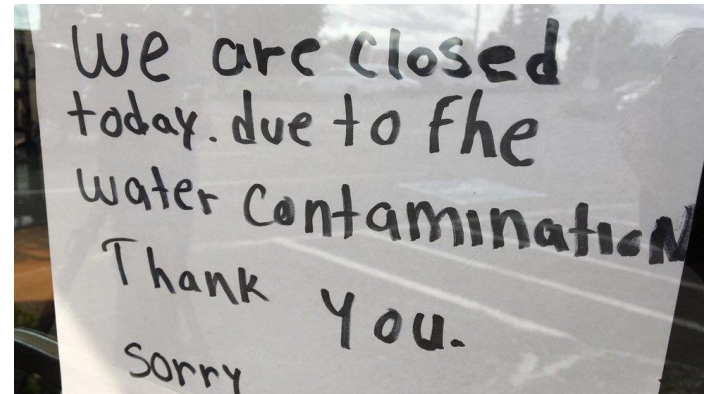 We are closed
today. due to fhe
water Contamination
Thank You.
Sorry